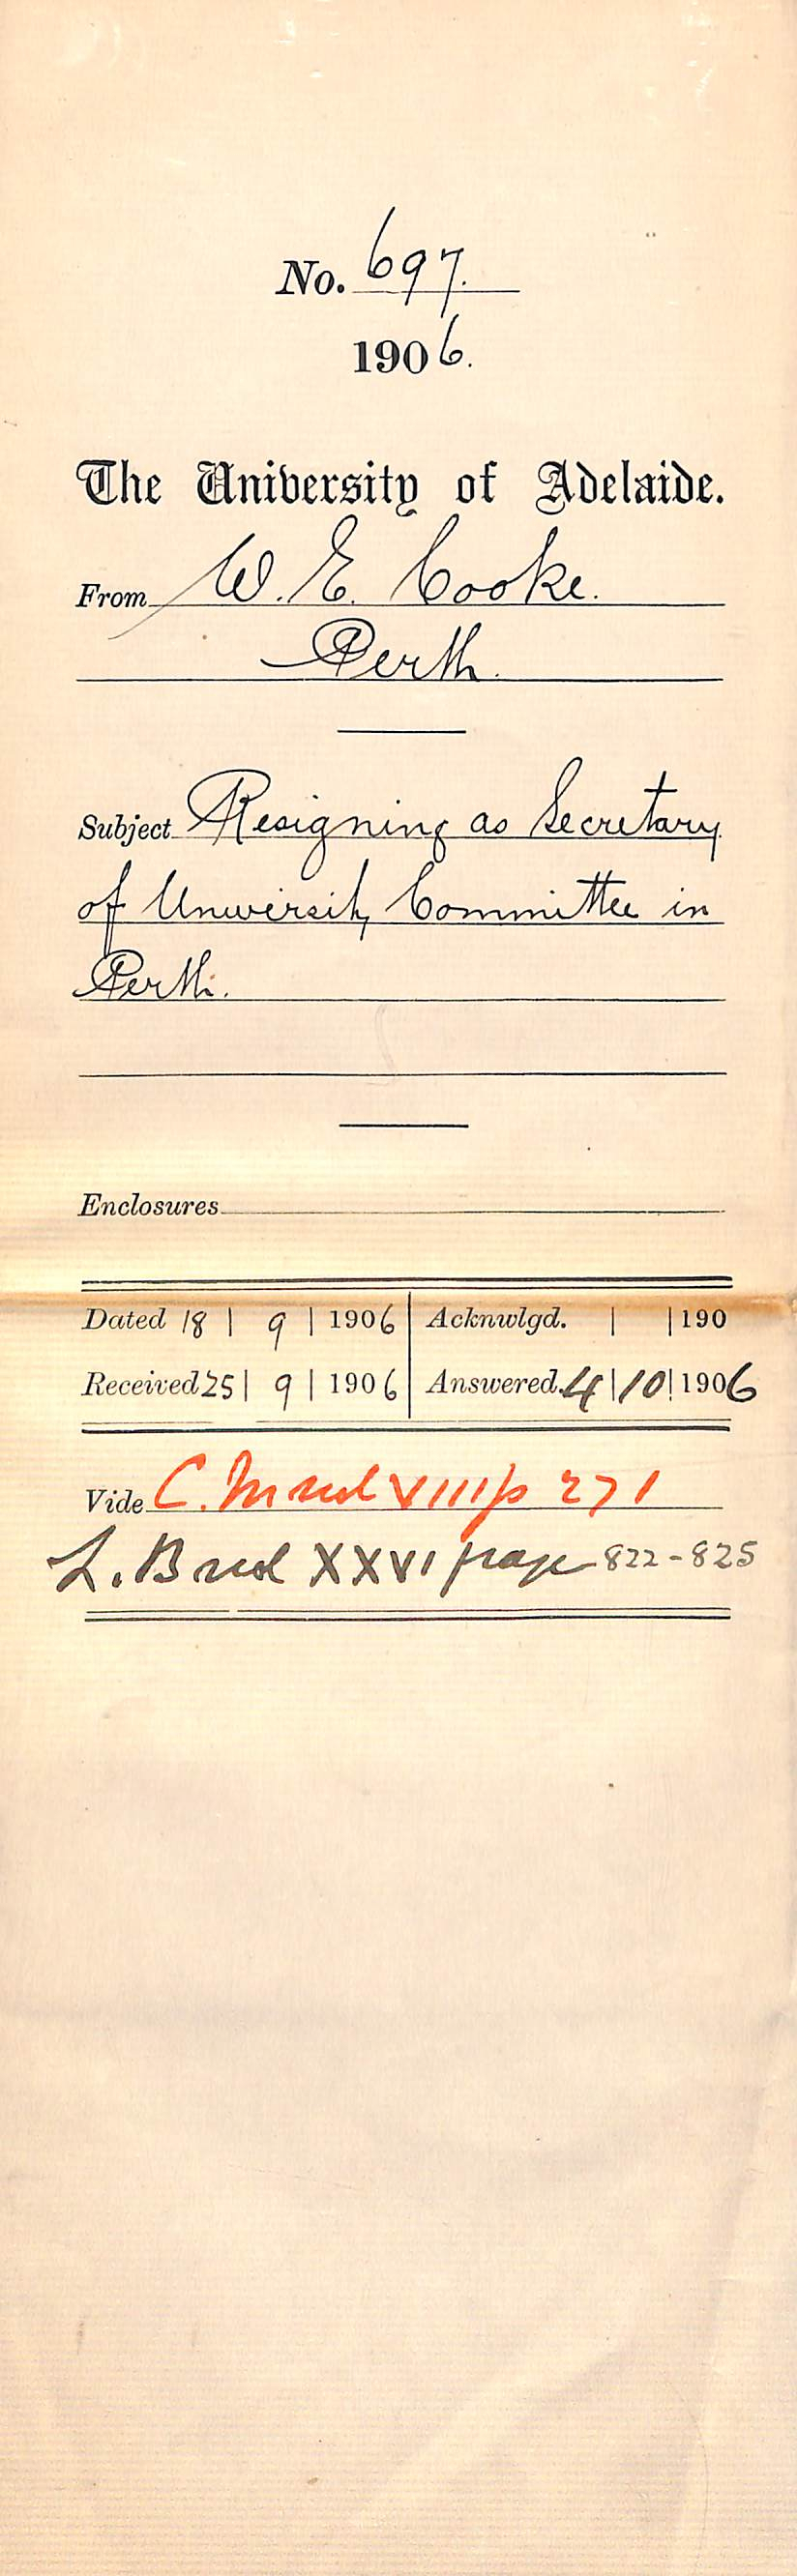 No. 697.
1906.
The University of Adelaide.
From W. E. Cooke.
Perth.
Subject Resigning as Secretary
of University Committee in
Perth.
Enclosures
Dated 18 | 9 | 1906 Acknwlgd. | | 190
Received 25 | 9 | 1906 Answered 4 | 10 | 1906
Vide C. M vol VIII p 271
L. B vol XXVI page 822-825